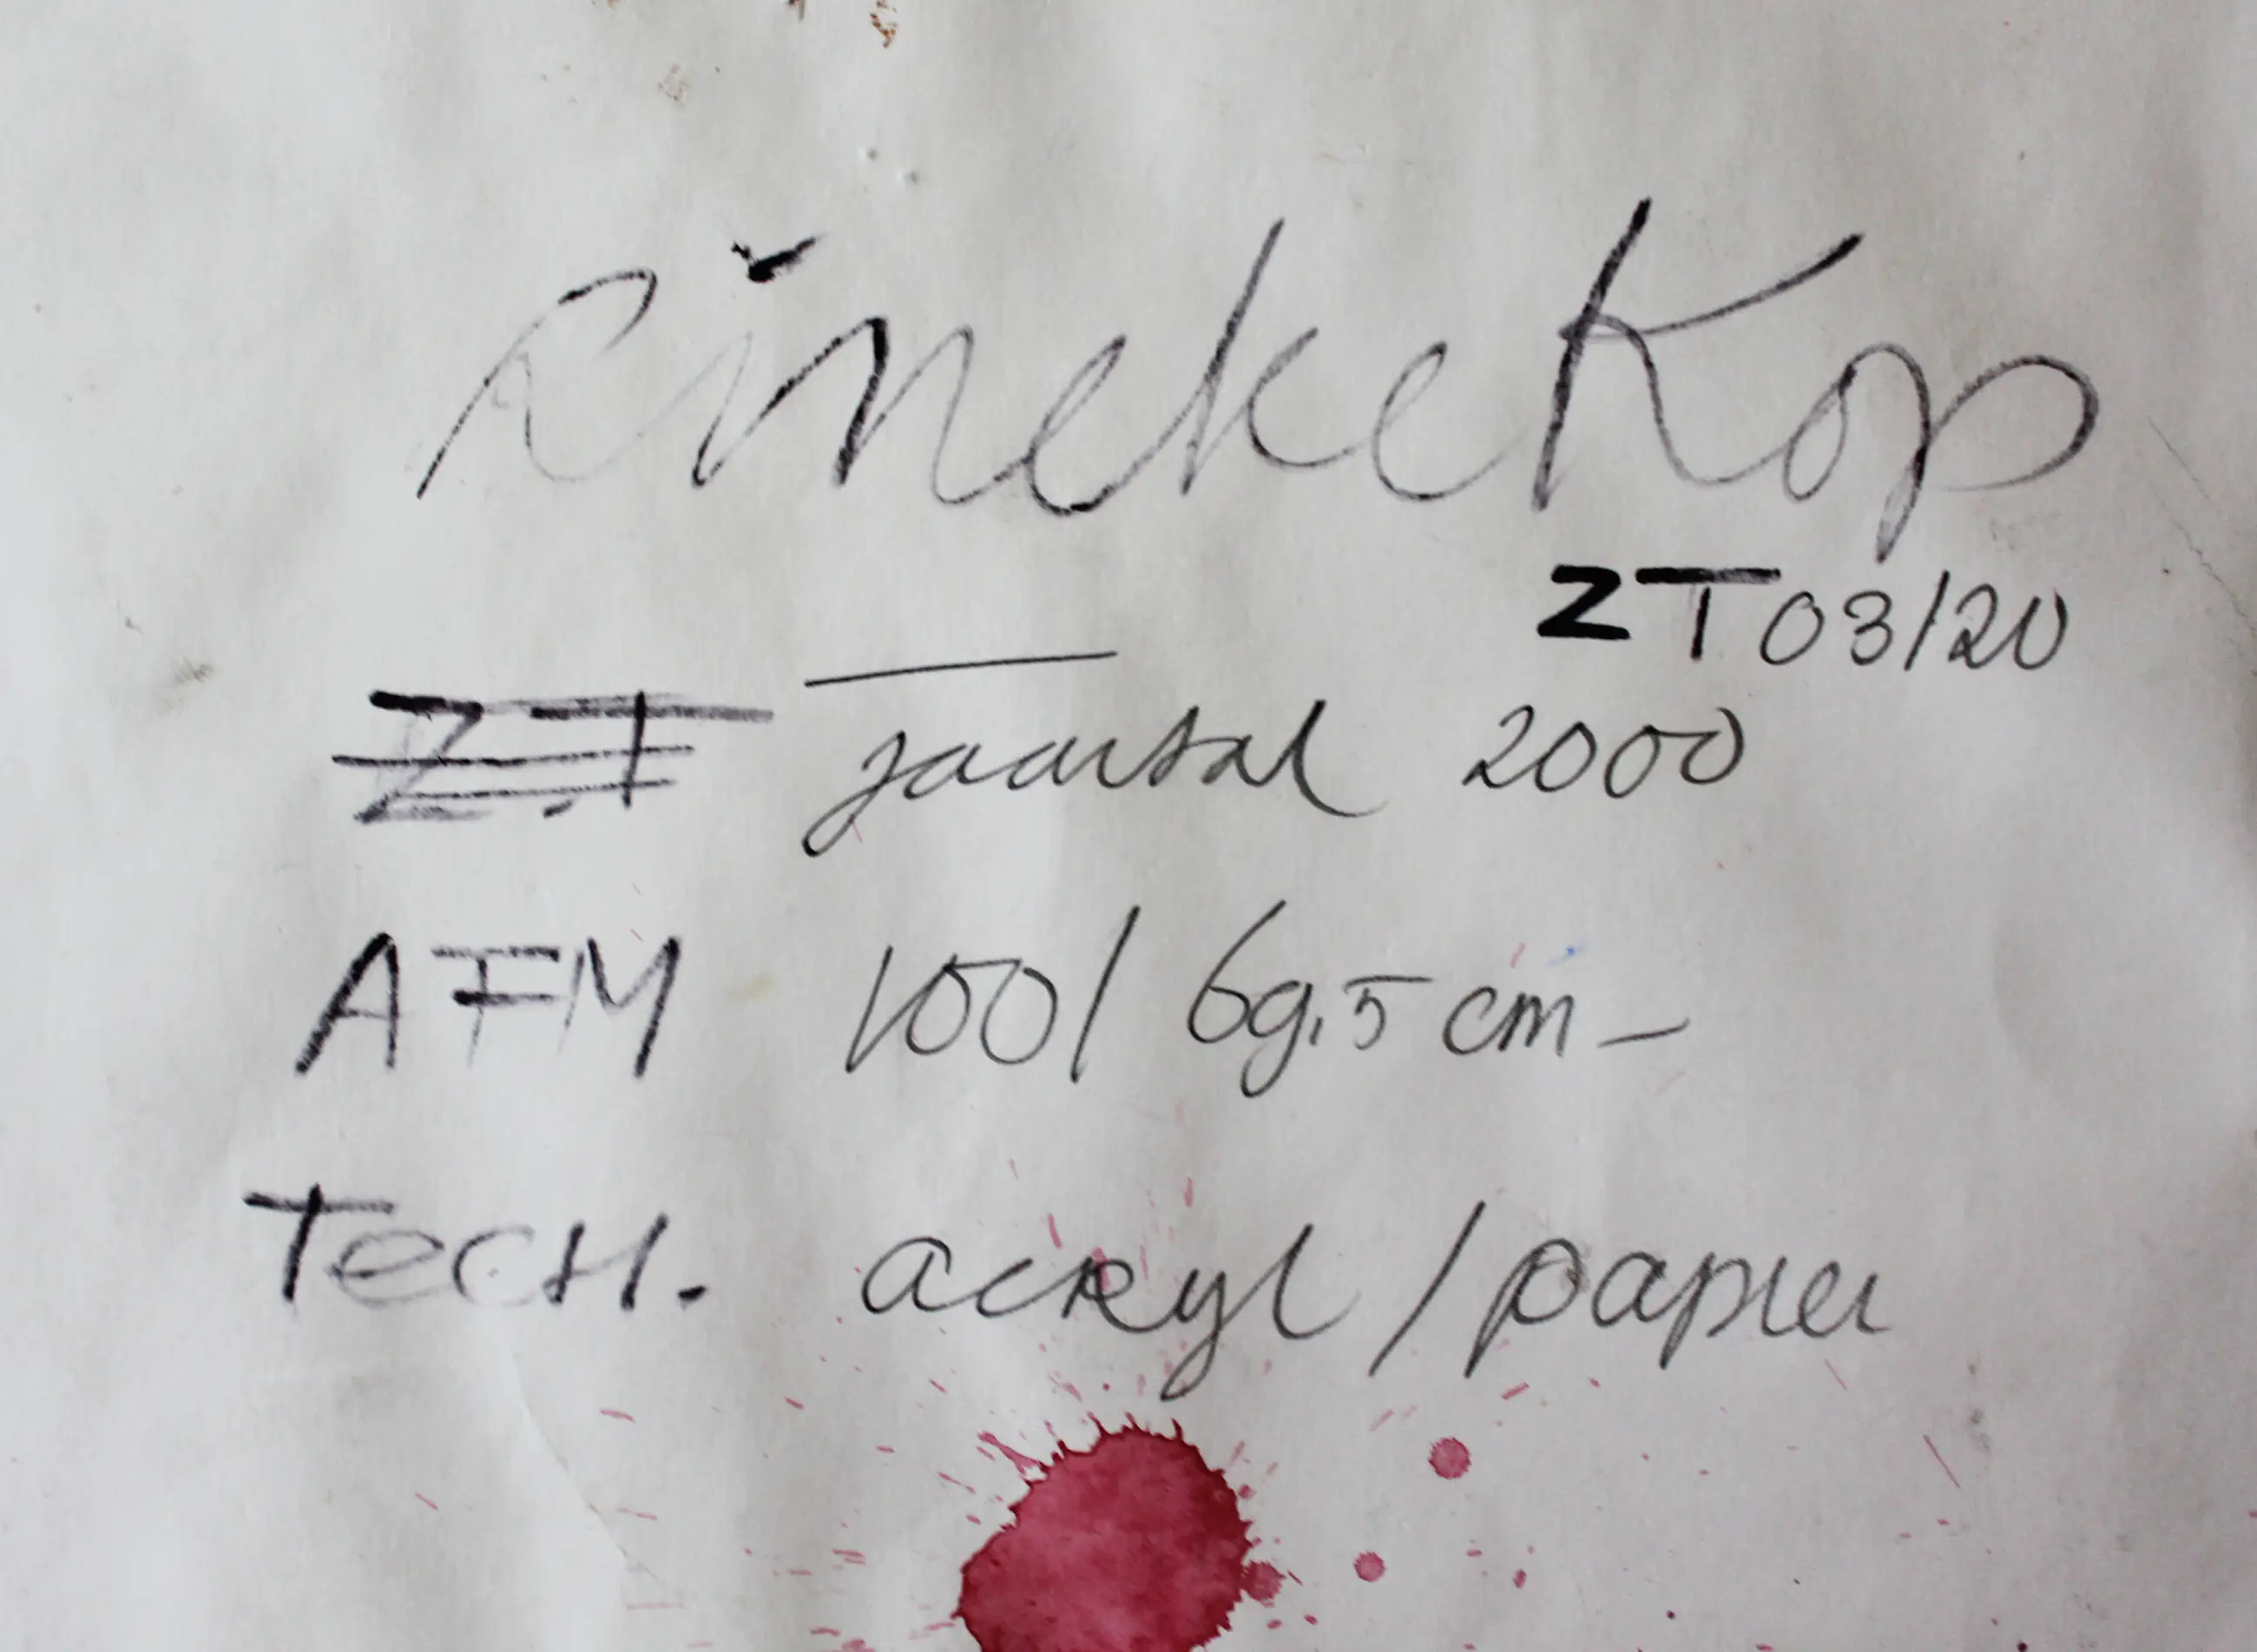 Rineke Kop
ZT 03/20
Z.T jaartal 2000
AFM 100/69,5 cm-
TECH. acryl/papier